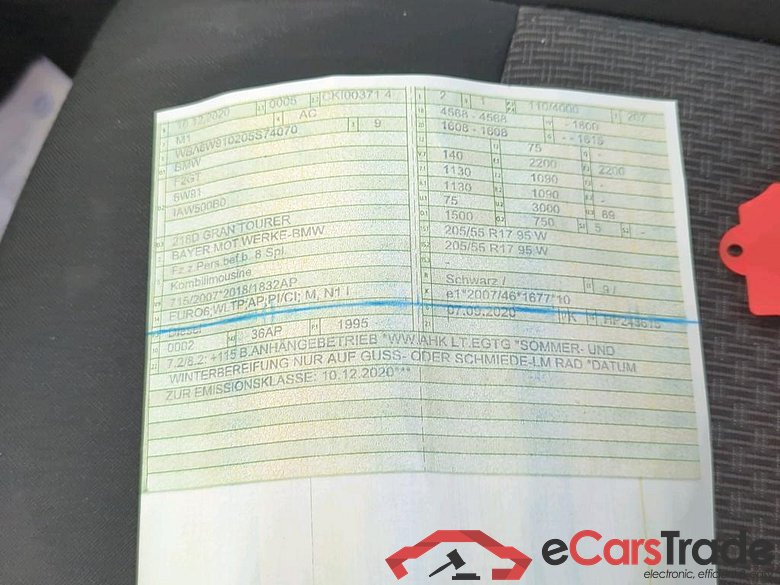 16.12.2020 0005 CKI00371 4
M1 AC
WBA6W910205S74070 9
BMW
F2GT
6W91
IAW500B0
218D GRAN TOURER
BAYER.MOT.WERKE-BMW
Fz.z.Pers.bef.b. 8 Spl.
Kombilimousine
715/2007*2018/1832AP
EURO6;WLTP;AP;PI/CI; M, N1 I
Diesel
0002 36AP 1995
2 1 110/4000 207
4568 - 4568 1800
1608 - 1608 - - 1615
75 -
140 2200 2200
1130 1090 -
1130 1090 -
75 3000 69
1500 750 5 -
205/55 R17 95 W
205/55 R17 95 W
-
Schwarz / 9 /
e1*2007/46*1677*10
07.05.2020 K
7.2/8.2: +115 B.ANHÄNGEBETRIEB *WW.AHK LT.EGTG *SOMMER- UND
WINTERBEREIFUNG NUR AUF GUSS- ODER SCHMIEDE-LM RAD *DATUM
ZUR EMISSIONSKLASSE: 10.12.2020***
eCarsTrade
electronic, effici